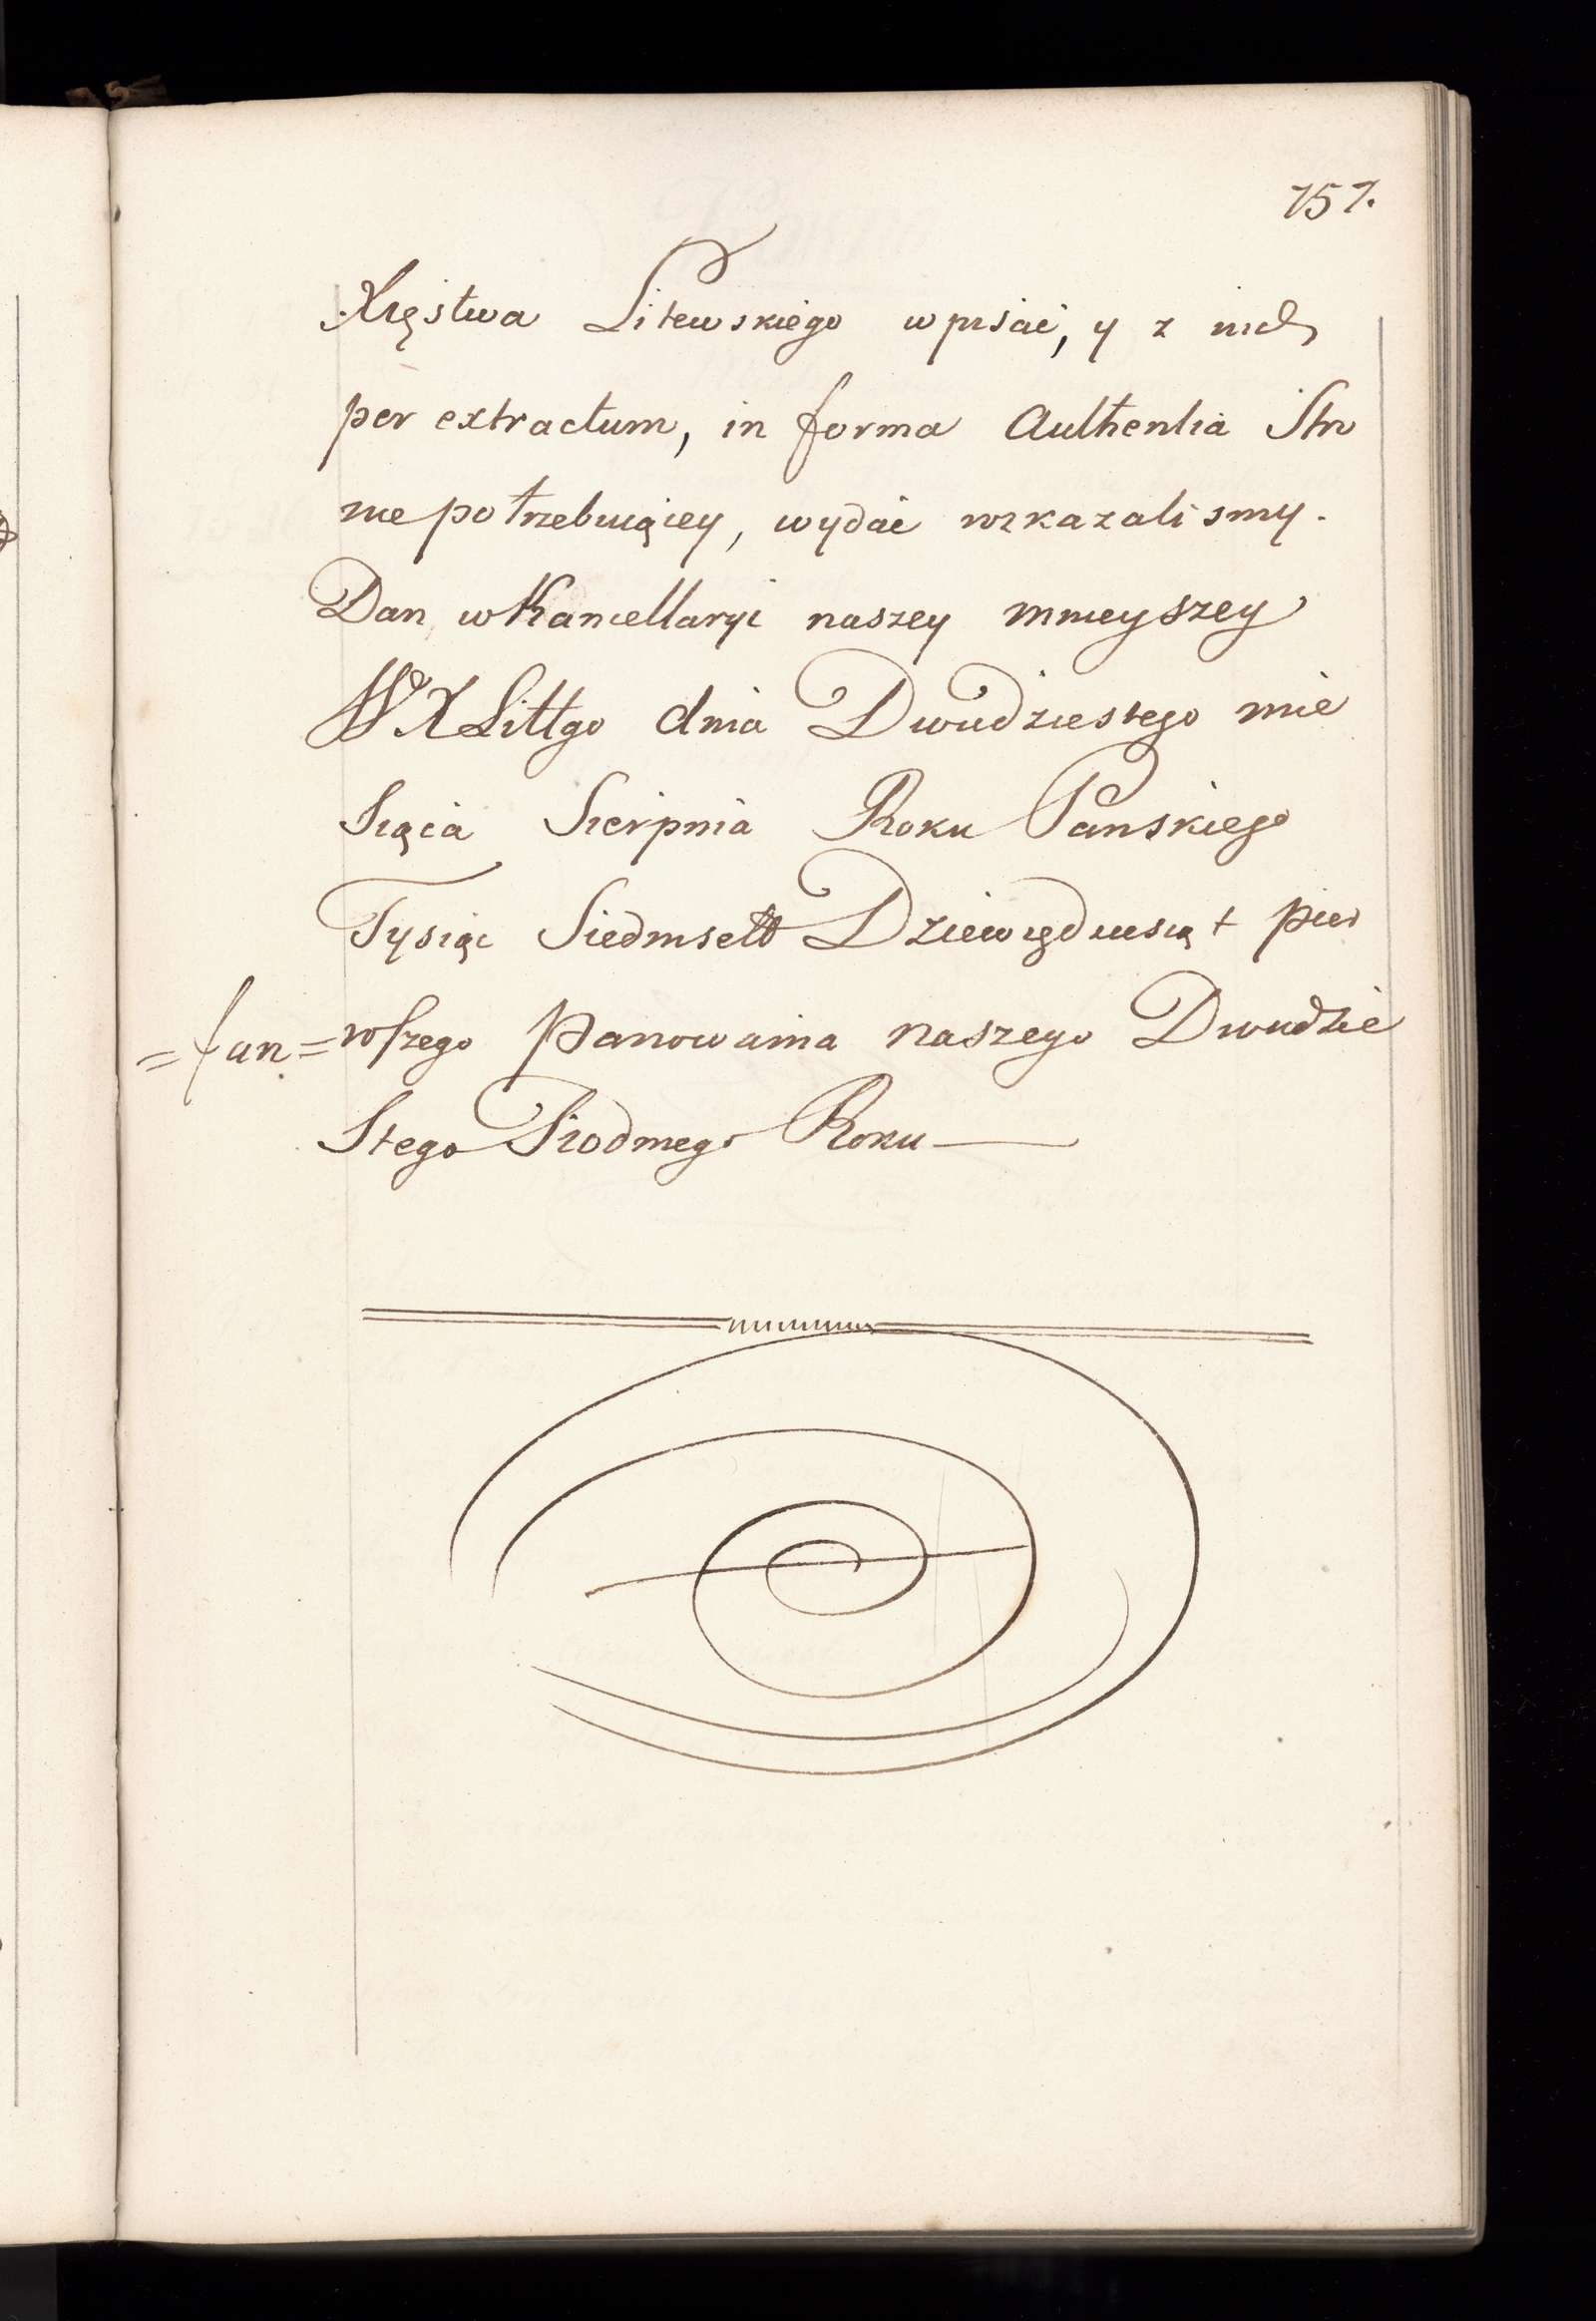 757.
Xięstwa Litewskiego wpisać, y z nich
per extractum, in forma Authentia Stro
nie potrzebuiącey, wydać rozkazalismy.
Dan w Kancellaryi naszey mnieyszey
W X Littgo dnia Dwudziestego mie
Siąca Sierpnia Roku Panskiego
Tysiąc Siedmsett Dziewiędziesiąt pier
wſzego Panowania naszego Dwudzie
Stego Siodmego Roku